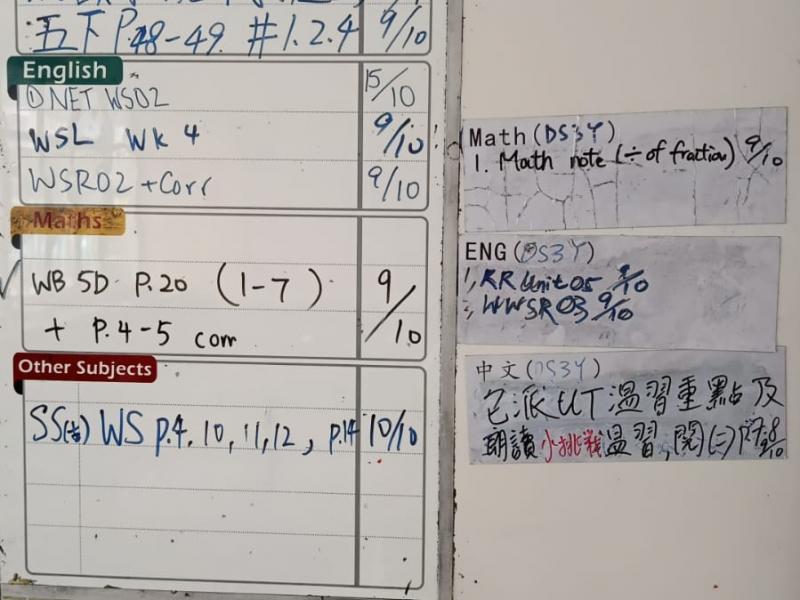 五下 P.48-49 #1.2.4 9/10
English
① NET WS02 15/10
WSL WK 4 9/10
WSR02 +Corr 9/10
Maths
WB 5D P.20 (1-7) 9/10
+ P.4-5 corr
Other Subjects
SS(書) WS p.4, 10, 11, 12, p.14 10/10
Math(DS3Y)
1. Math note (÷ of fraction) 9/10
ENG(DS3Y)
1, RR Unit 05 9/10
2, WWSR03 9/10
中文(DS3Y)
已派UT溫習重點及
朗讀小挑戰溫習,閱(二)